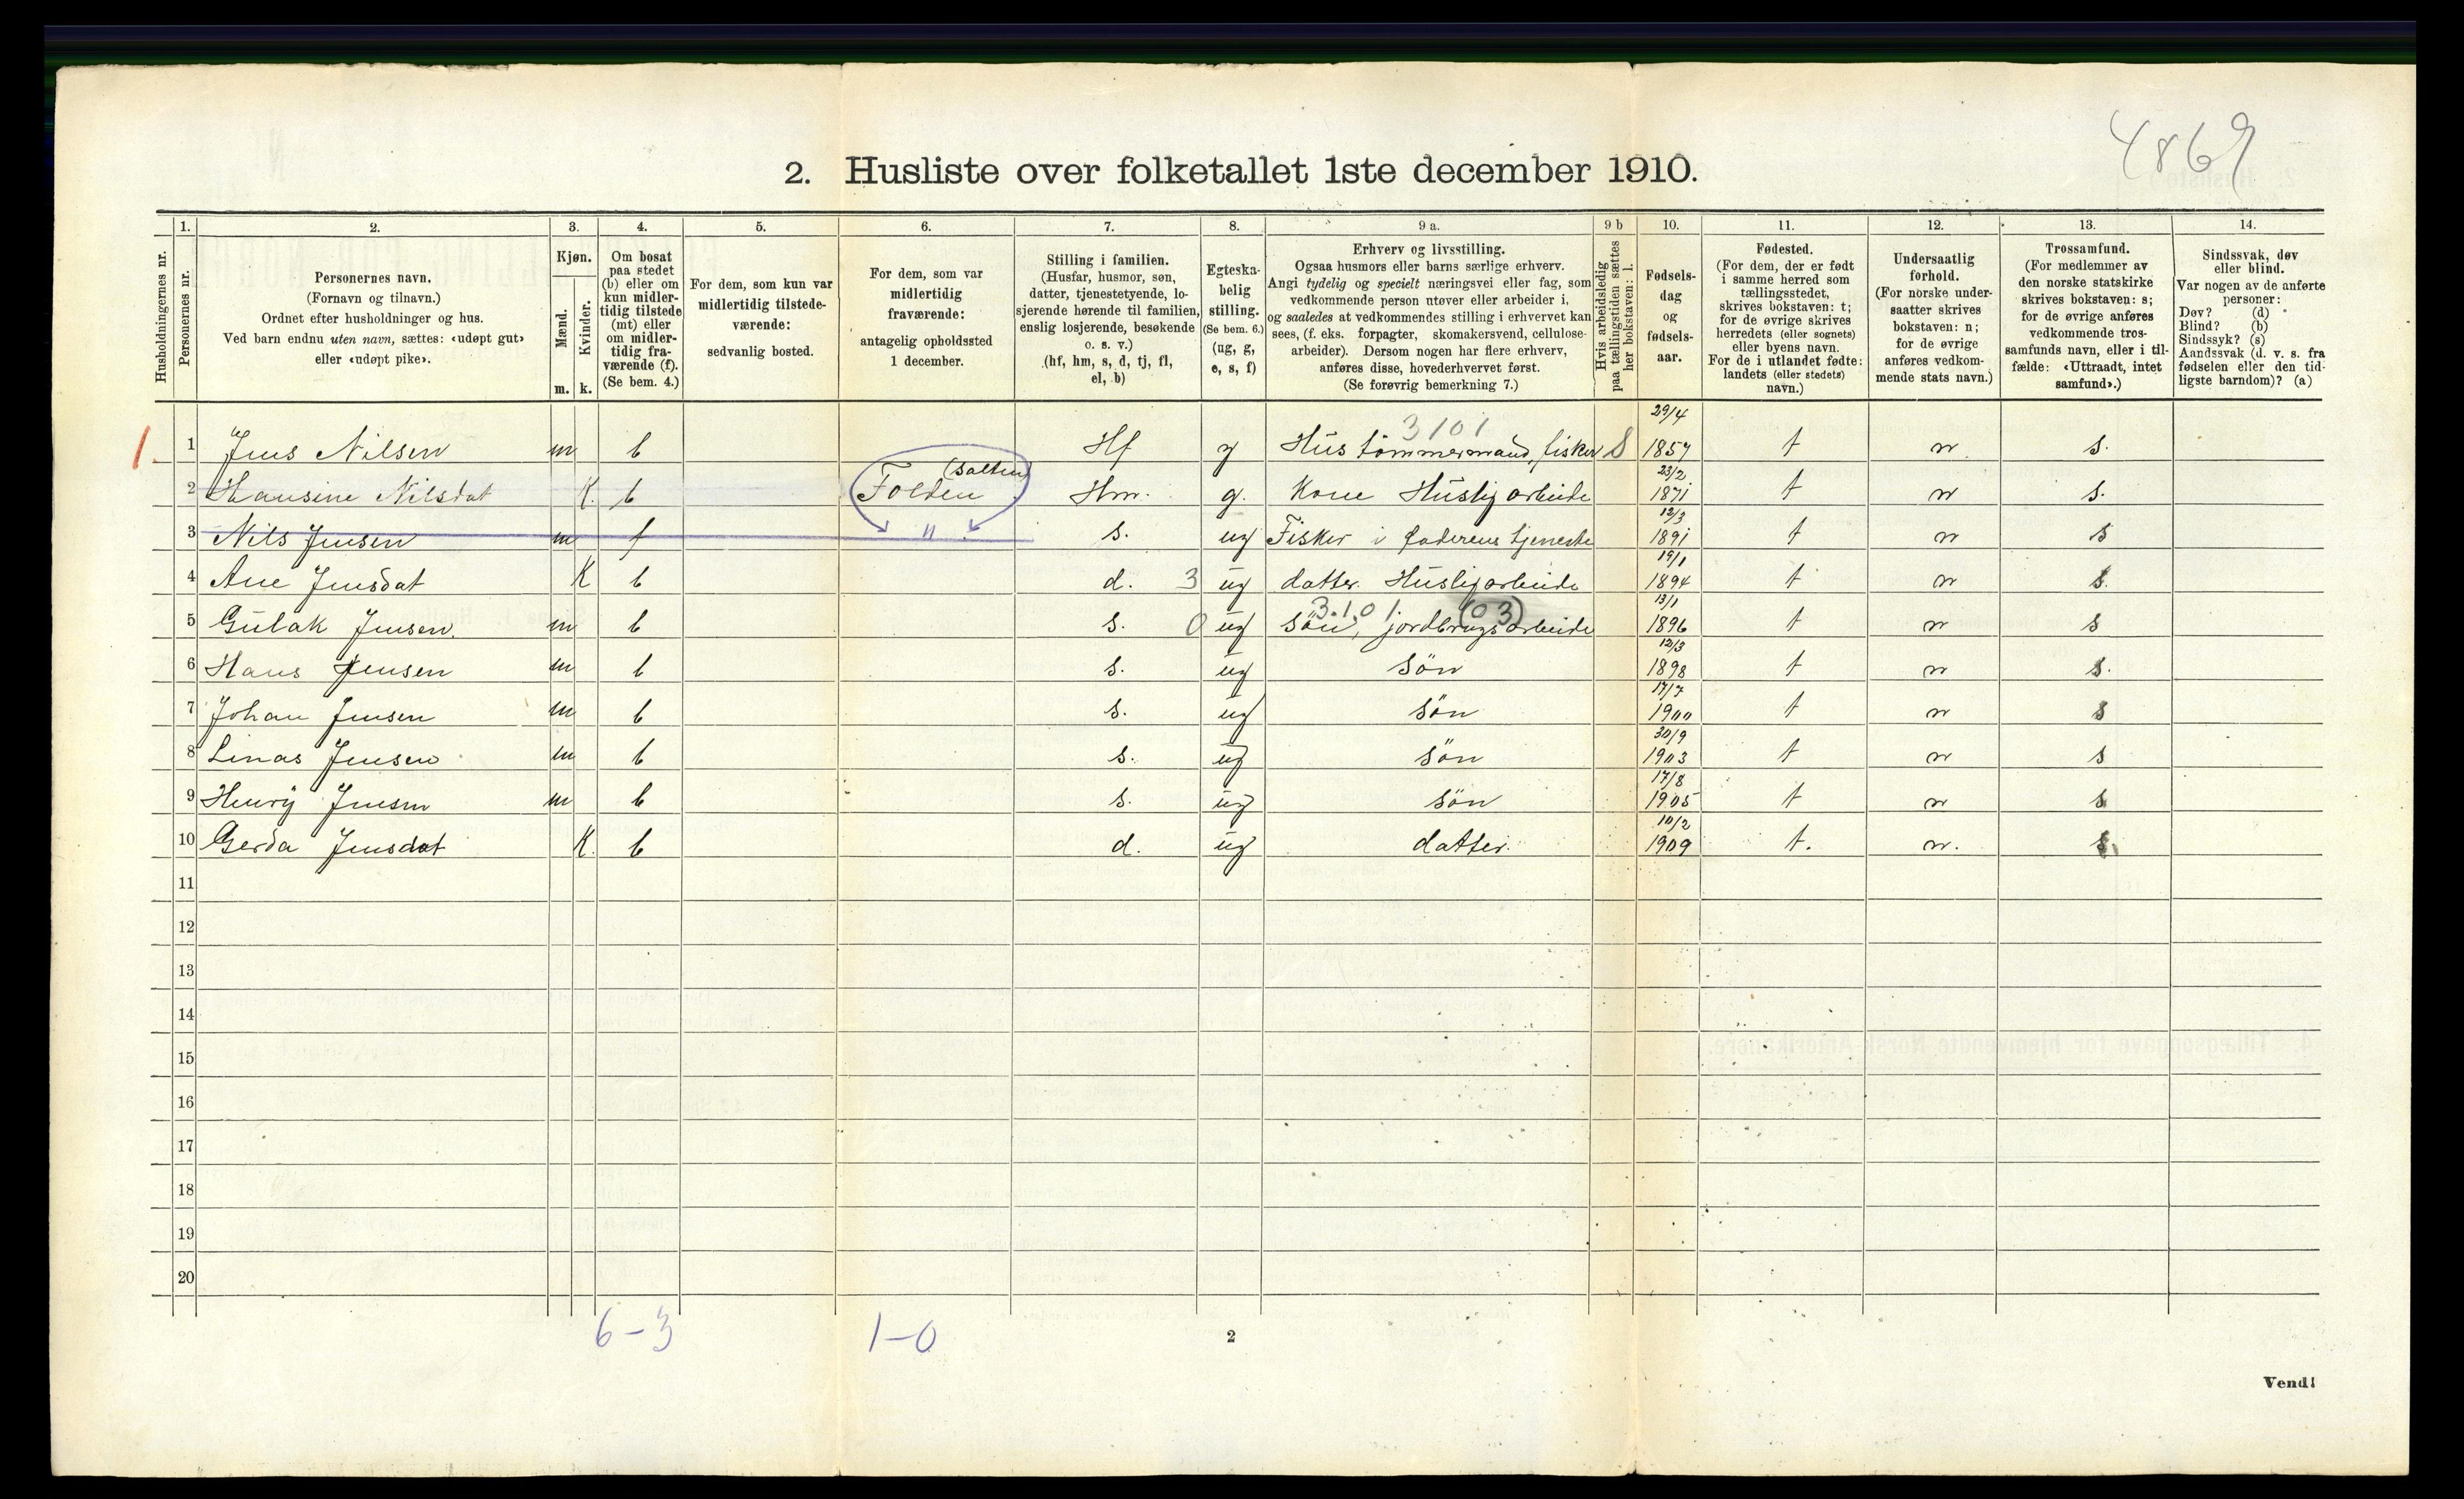 4869
2. Husliste over folketallet 1ste december 1910.
1. 2. 3. 4. 5. 6. 7. 8. 9 a. 9 b 10. 11. 12. 13. 14.
Husholdningernes nr.
Personernes nr.
Personernes navn.
(Fornavn og tilnavn.)
Ordnet efter husholdninger og hus.
Ved barn endnu uten navn, sættes: «udøpt gut»
eller «udøpt pike».
Kjøn.
Mænd.
Kvinder.
m. k.
Om bosat
paa stedet
(b) eller om
kun midler-
tidig tilstede
(mt) eller
om midler-
tidig fra-
værende (f).
(Se bem. 4.)
For dem, som kun var
midlertidig tilstede-
værende:
sedvanlig bosted.
For dem, som var
midlertidig
fraværende:
antagelig opholdssted
1 december.
Stilling i familien.
(Husfar, husmor, søn,
datter, tjenestetyende, lo-
sjerende hørende til familien,
enslig losjerende, besøkende
o. s. v.)
(hf, hm, s, d, tj, fl,
el, b)
Egteska-
belig
stilling.
(Se bem. 6.)
(ug, g,
e, s, f)
Erhverv og livsstilling.
Ogsaa husmors eller barns særlige erhverv.
Angi tydelig og specielt næringsvei eller fag, som
vedkommende person utøver eller arbeider i,
og saaledes at vedkommendes stilling i erhvervet kan
sees, (f. eks. forpagter, skomakersvend, cellulose-
arbeider). Dersom nogen har flere erhverv,
anføres disse, hovederhvervet først.
(Se forøvrig bemerkning 7.)
Hvis arbeidsledig
paa tællingstiden sættes
her bokstaven: l.
Fødsels-
dag
og
fødsels-
aar.
Fødested.
(For dem, der er født
i samme herred som
tællingsstedet,
skrives bokstaven: t;
for de øvrige skrives
herredets (eller sognets)
eller byens navn.
For de i utlandet fødte:
landets (eller stedets)
navn.)
Undersaatlig
forhold.
(For norske under-
saatter skrives
bokstaven: n;
for de øvrige
anføres vedkom-
mende stats navn.)
Trossamfund.
(For medlemmer av
den norske statskirke
skrives bokstaven: s;
for de øvrige anføres
vedkommende tros-
samfunds navn, eller i til-
fælde: «Uttraadt, intet
samfund».)
Sindssvak, døv
eller blind.
Var nogen av de anførte
personer:
Døv? (d)
Blind? (b)
Sindssyk? (s)
Aandssvak (d. v. s. fra
fødselen eller den tid-
ligste barndom)? (a)
3101 29/4
1. 1 Jens Nilsen m b Hf g Hus tömmermand, fisker 1857 t n s.
(Salten) 23/2
2 Hansine Nilsdat K. b Folden Hm. g. Kone Huslig arbeide 1871 t n s.
12/3
3 Nils Jensen m f " s. ug Fisker i faderens tjeneste 1891 t n s
19/1
4 Ane Jensdat K b d. 3 ug datter. Huslig arbeide 1894 t n s.
3.1.0 1. (03) 13/1
5 Gulak Jensen. m b s. 0 ug sön, jordbrugsarbeide 1896 t n s
12/3
6 Hans Jensen m b s. ug sön 1898 t n s.
17/7
7 Johan Jensen m b s. ug sön 1900 t n s
30/9
8 Linas Jensen m b s. ug sön 1903 t n s
17/8
9 Henrÿ Jensen m b s. ug sön 1905 t n s
10/2
10 Gerda Jensdat K. b d. ug datter 1909 t. n. s.
11
12
13
14
15
16
17
18
19
20
6-3 1-0 2
Vend!